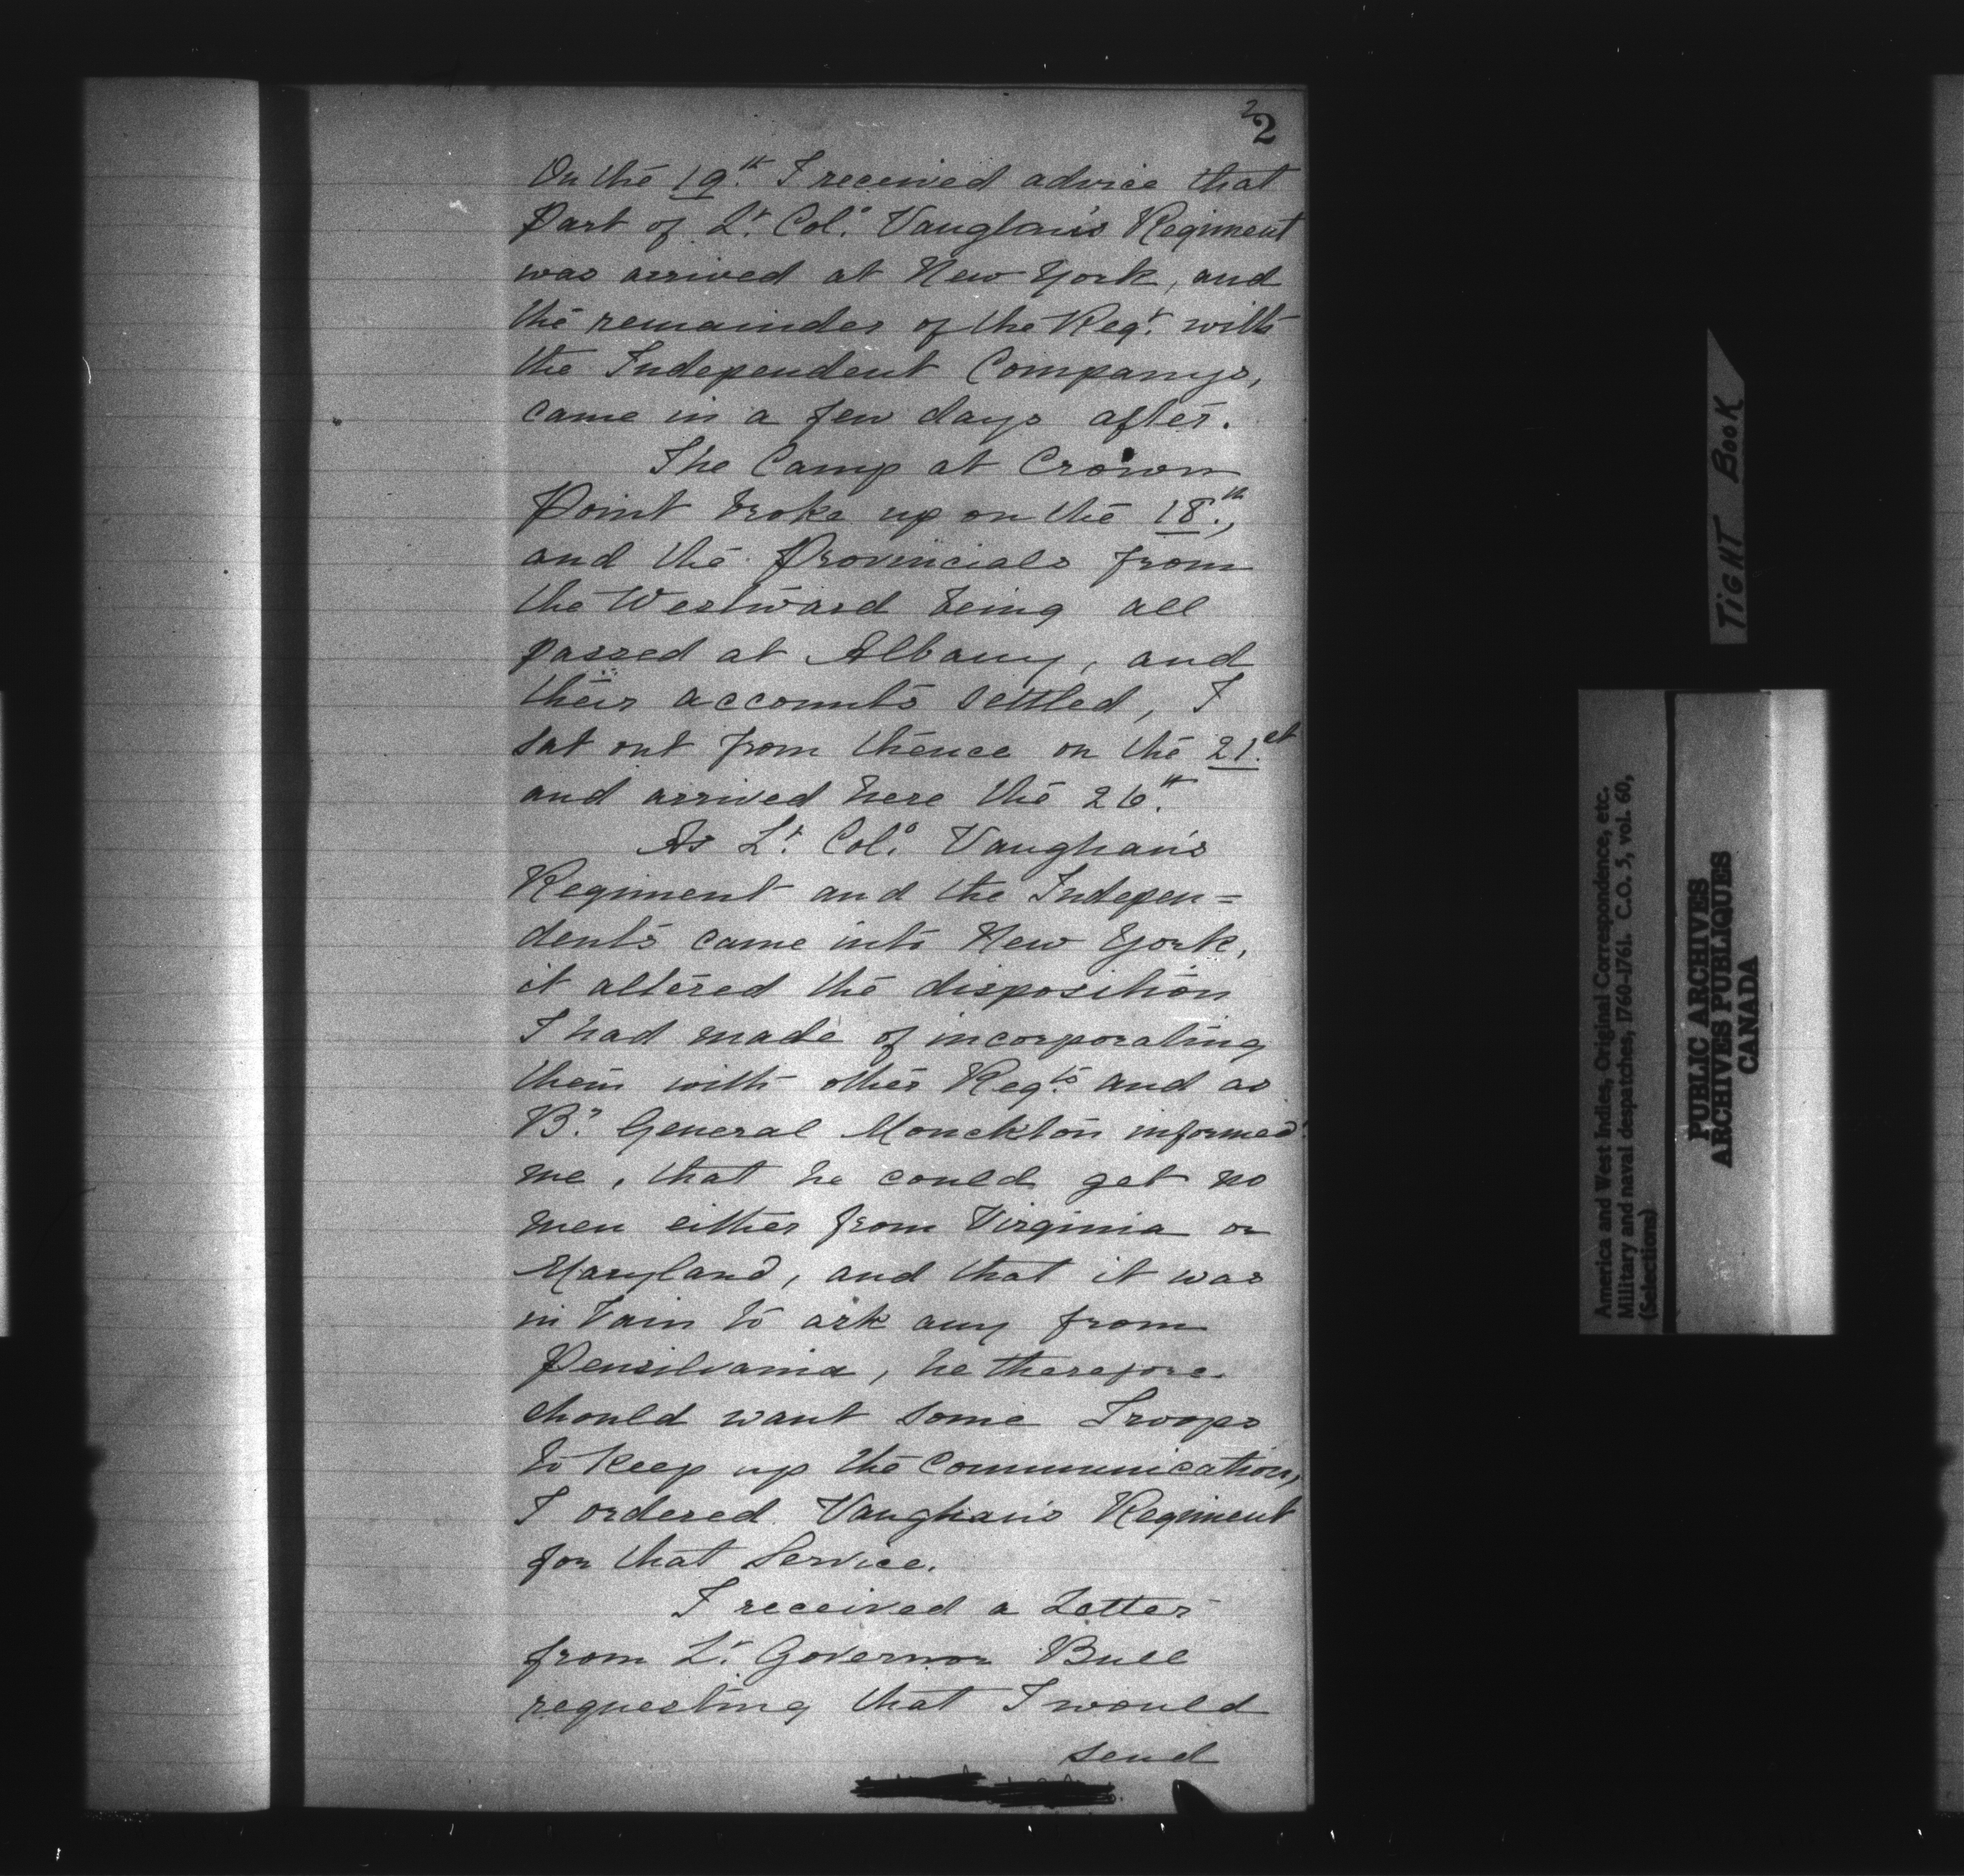 2
2
On the 19.th I received advice that
Part of L.t Col.o Vaughan's Regiment
was arrived at New York, and
the remainder of the Reg.t with
the Independent Companys,
came in a few days after.
The Camp at Crown
Point broke up on the 18.th,
and the Provincials from
the Westward being all
passed at Albany, and
their accounts settled, I
sat out from thence on the 21.st
and arrived here the 26.th
As L.t Col.o Vaughan's
Regiment and the Indepen=
dents came into New York,
it altered the disposition
I had made of incorporating
them with other Reg.ts and as
B.r General Monckton informed
me, that he could get no
men either from Virginia or
Maryland, and that it was
in Vain to ask any from
Pensilvania, he therefore
should want some Troops
to keep up the Communication,
I ordered Vaughan's Regiment
for that Service.
I received a Letter
from L.t Governor Bull
requesting that I would
send
TIGHT BOOK
America and West Indies, Original Correspondence, etc.
Military and naval despatches, 1760-1761. C.O. 5, vol. 60,
(Selections)
PUBLIC ARCHIVES
ARCHIVES PUBLIQUES
CANADA